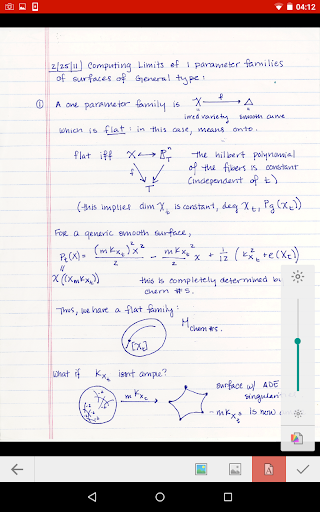 04:12
2/25/11 Computing Limits of 1 parameter families
of surfaces of General type:
① A one parameter family is X —f→ Δ
irred variety smooth curve
which is flat; in this case, means onto.
flat iff X ↔ P^n_T The hilbert polynomial
f of the fibers is constant
T (independent of t)
(this implies dim X_t is constant, deg X_t, Pg(X_t))
For a generic smooth surface,
P_t(X) = (mK_{X_t})²x²/2 − mK_{X_t}²x/2 + 1/12 (K²_{X_t} + e(X_t))
χ((X_mK_{X_t})) this is completely determined
chern #s.
Thus, we have a flat family:
[X_t] M_{chern #s}.
What if K_{X_t} isn't ample?
mK_{X_t} surface w/ ADE
- mK_{X_t} is now